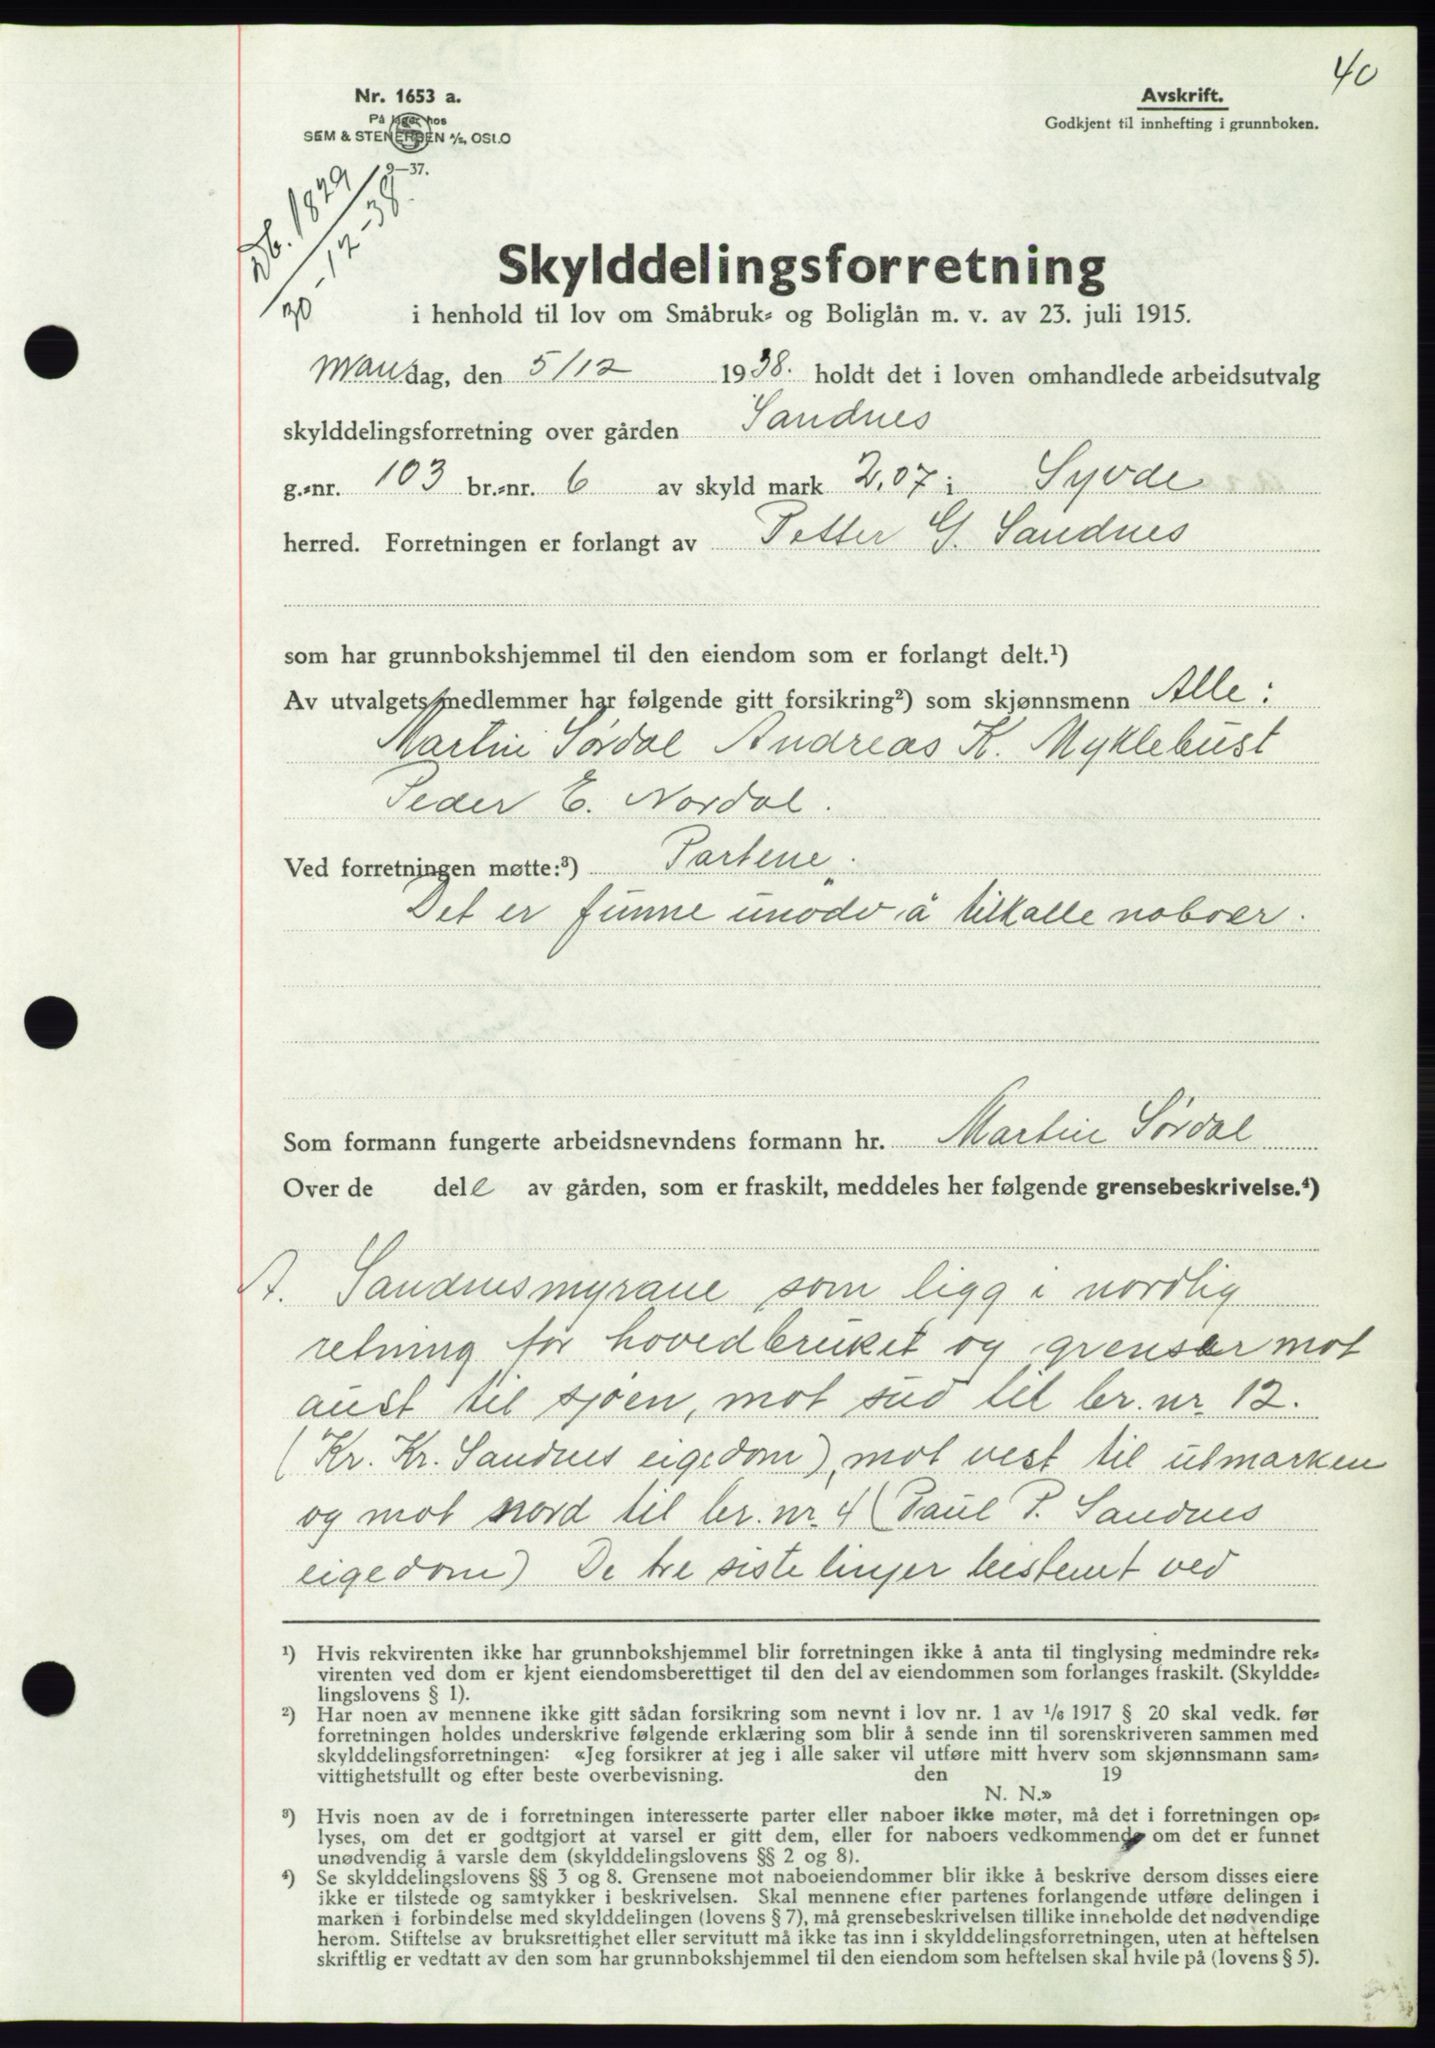 40
Nr. 1653 a.
På lager hos
SEM & STENERSEN A/S, OSLO
9—37.
Avskrift.
Godkjent til innhefting i grunnboken.
Db. 1829
30-12-38.
Skylddelingsforretning
i henhold til lov om Småbruk- og Boliglån m. v. av 23. juli 1915.
Mandag, den 5/12 1938. holdt det i loven omhandlede arbeidsutvalg
skylddelingsforretning over gården Sandnes
g.-nr. 103 br.-nr. 6 av skyld mark 2,07 i Syvde
herred. Forretningen er forlangt av Petter G. Sandnes
som har grunnbokshjemmel til den eiendom som er forlangt delt.¹)
Av utvalgets medlemmer har følgende gitt forsikring²) som skjønnsmenn Alle:
Martin Sørdal Andreas K. Myklebust
Peder E. Nordal.
Ved forretningen møtte:³) Partene.
Det er funne unødv. å tilkalle naboer.
Som formann fungerte arbeidsnevndens formann hr. Martin Sørdal
Over de dele av gården, som er fraskilt, meddeles her følgende grensebeskrivelse.⁴)
A. Sandnesmyrane som ligg i nordlig
retning for hovedbruket og grenser mot
aust til sjøen, mot sud til br. nr. 12.
(Kr. Kr. Sandnes eigedom), mot vest til utmarken
og mot nord til br. nr. 4 (Paul P. Sandnes
eigedom) De tre siste linjer bestemt ved
¹) Hvis rekvirenten ikke har grunnbokshjemmel blir forretningen ikke å anta til tinglysing medmindre rek-
virenten ved dom er kjent eiendomsberettiget til den del av eiendommen som forlanges fraskilt. (Skyldde-
lingslovens § 1).
²) Har noen av mennene ikke gitt sådan forsikring som nevnt i lov nr. 1 av 1/6 1917 § 20 skal vedk. før
forretningen holdes underskrive følgende erklæring som blir å sende inn til sorenskriveren sammen med
skylddelingsforretningen: «Jeg forsikrer at jeg i alle saker vil utføre mitt hverv som skjønnsmann sam-
vittighetsfullt og efter beste overbevisning. den 19
N. N.»
³) Hvis noen av de i forretningen interesserte parter eller naboer ikke møter, må det i forretningen op-
lyses, om det er godtgjort at varsel er gitt dem, eller for naboers vedkommende om det er funnet
unødvendig å varsle dem (skylddelingslovens §§ 2 og 8).
⁴) Se skylddelingslovens §§ 3 og 8. Grensene mot naboeiendommer blir ikke å beskrive dersom disses eiere
ikke er tilstede og samtykker i beskrivelsen. Skal mennene efter partenes forlangende utføre delingen i
marken i forbindelse med skylddelingen (lovens § 7), må grensebeskrivelsen tillike inneholde det nødvendige
herom. Stiftelse av bruksrettighet eller servitutt må ikke tas inn i skylddelingsforretningen, uten at heftelsen
skriftlig er vedtatt av den som har grunnbokshjemmel til den eiendom som heftelsen skal hvile på (lovens § 5).